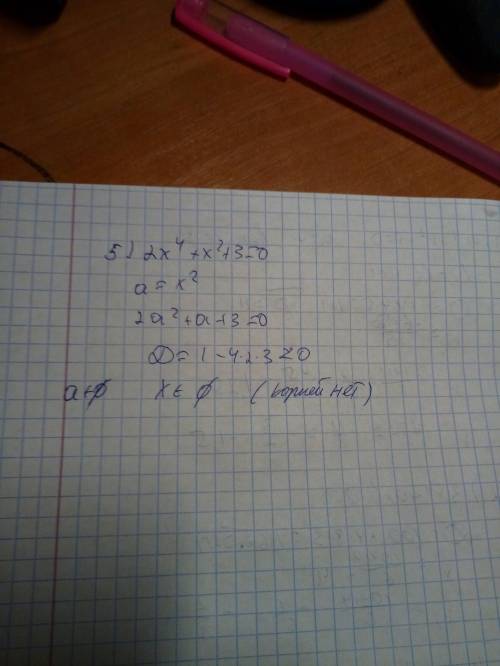 5) 2x⁴+x²+3=0
a=x²
2a²+a+3=0
D=1-4·2·3<0
a∈∅ x∈∅ (корней нет)